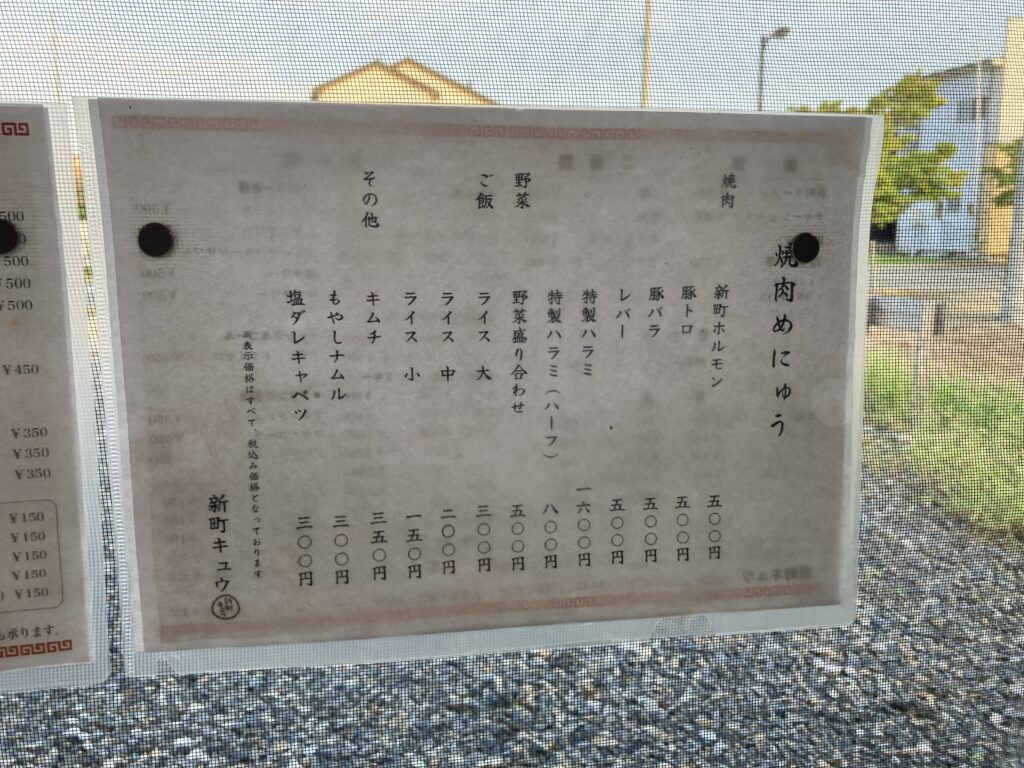 焼肉めにゅう
焼肉
新町ホルモン 五〇〇円
豚トロ 五〇〇円
豚バラ 五〇〇円
レバー 五〇〇円
特製ハラミ 一六〇〇円
特製ハラミ(ハーフ) 八〇〇円
野菜
野菜盛り合わせ 五〇〇円
ご飯
ライス 大 三〇〇円
ライス 中 二〇〇円
ライス 小 一五〇円
その他
キムチ 三五〇円
もやしナムル 三〇〇円
塩ダレキャベツ 三〇〇円
※表示価格はすべて、税込み価格となっております
新町キュウ
500
500
¥500
¥500
¥450
¥350
¥350
¥350
¥150
¥150
¥150
¥150
¥150
も承ります。